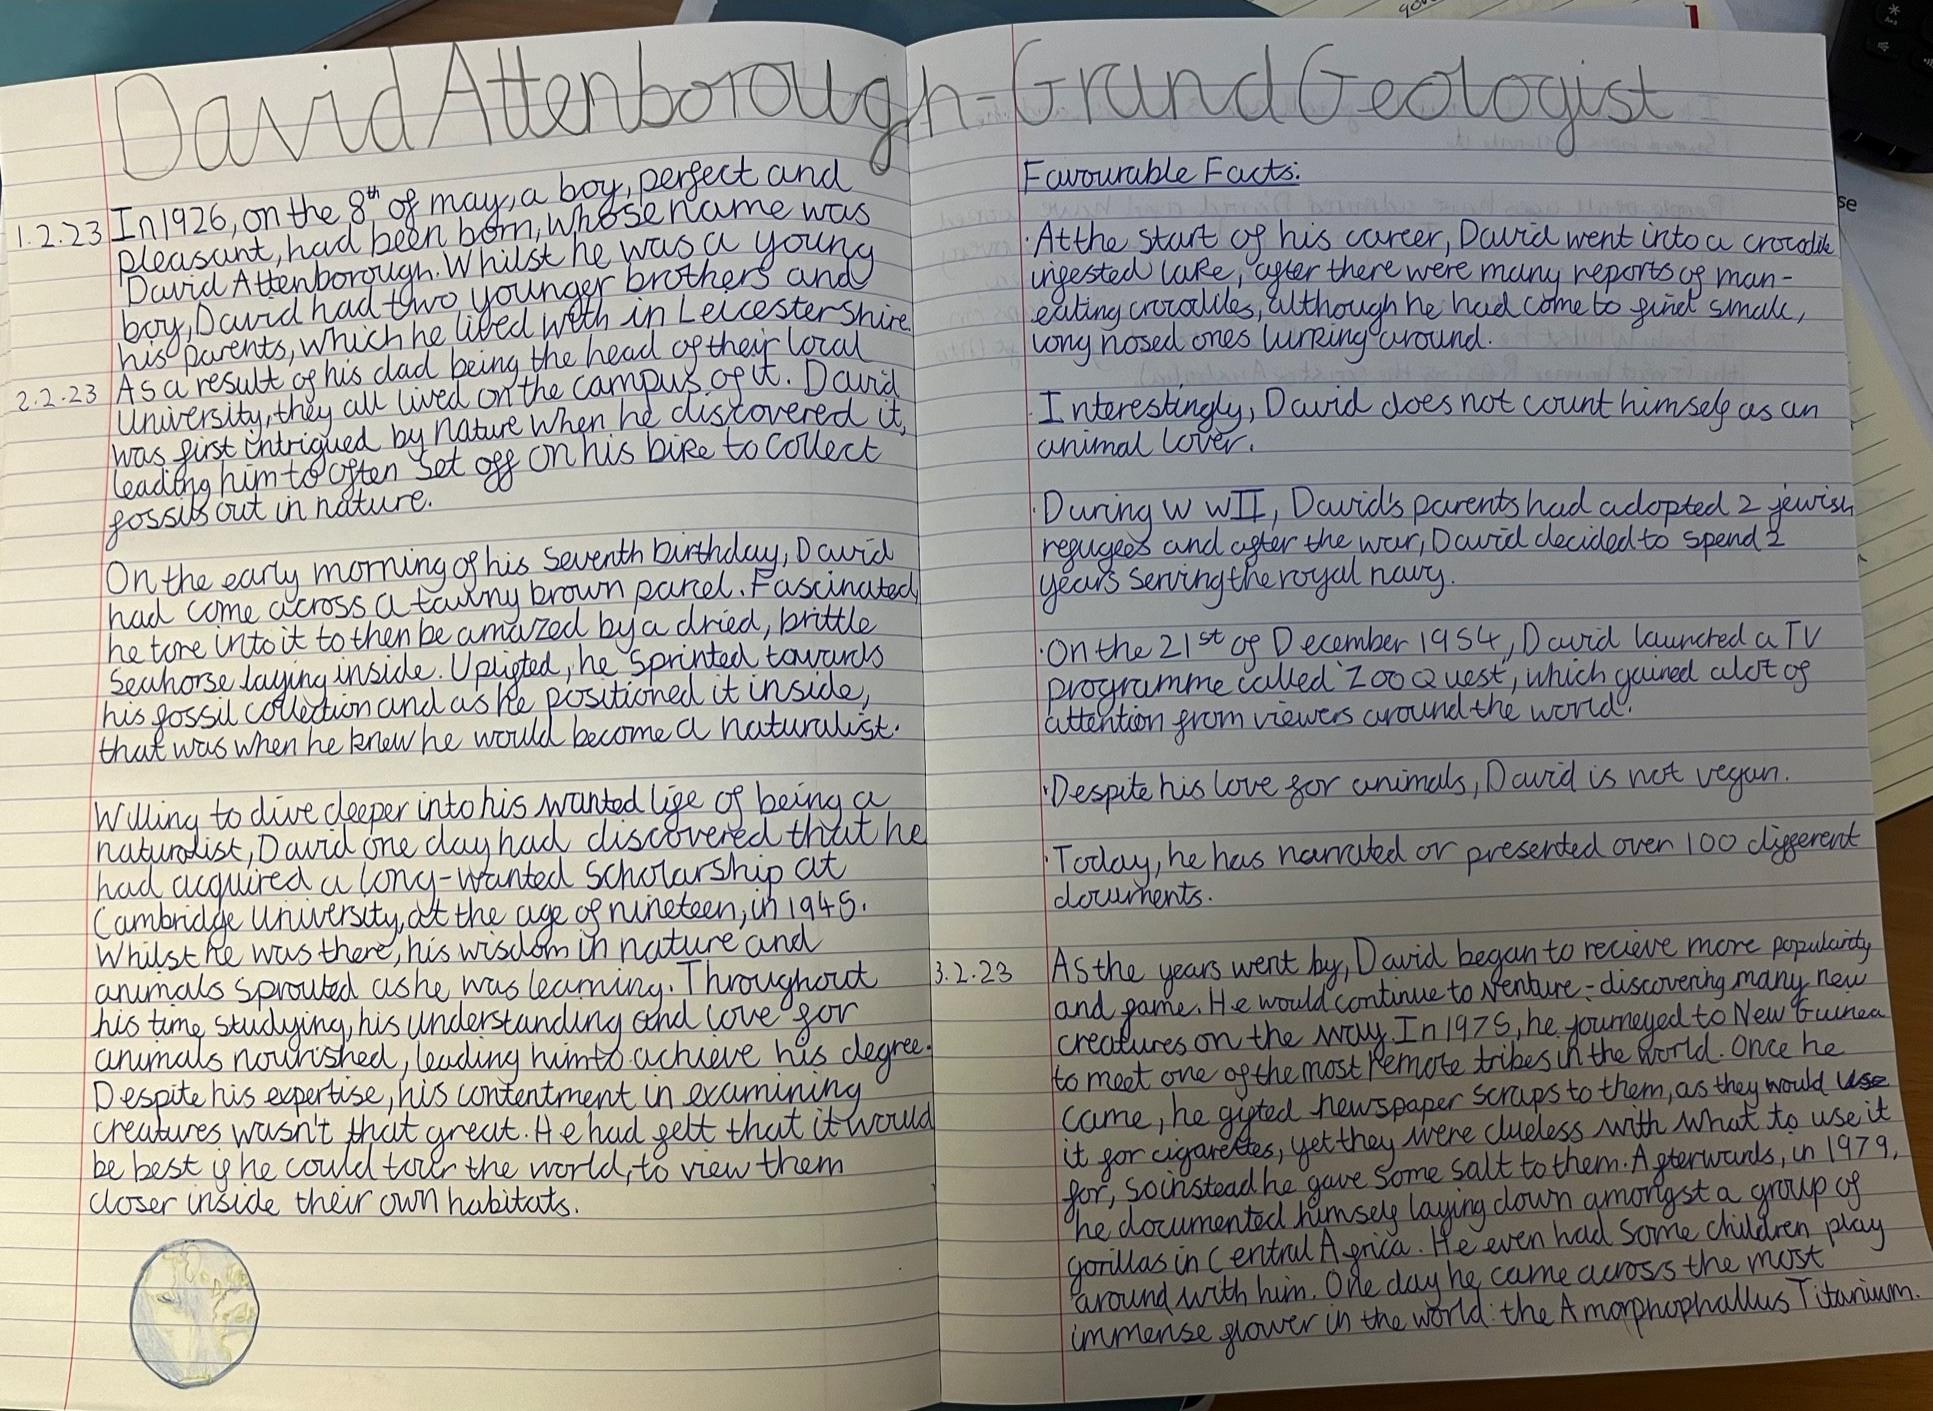 David Attenborough - Grand Geologist
1.2.23 In 1926, on the 8th of may, a boy, perfect and
pleasant, had been born, whose name was
David Attenborough. Whilst he was a young
boy, David had two younger brothers and
his parents, which he lived with in Leicestershire.
2.2.23 As a result of his dad being the head of their local
University, they all lived on the campus of it. David
was first intrigued by nature when he discovered it,
leading him to often set off on his bike to collect
fossils out in nature.
On the early morning of his seventh birthday, David
had come across a tawny brown parcel. Fascinated,
he tore into it to then be amazed by a dried, brittle
Seahorse laying inside. Uplifted, he sprinted towards
his fossil collection and as he positioned it inside,
that was when he knew he would become a naturalist.
Willing to dive deeper into his wanted life of being a
naturalist, David one day had discovered that he
had acquired a long-wanted scholarship at
Cambridge University, at the age of nineteen, in 1945.
Whilst he was there, his wisdom in nature and
animals sprouted as he was learning. Throughout
his time studying, his understanding and love for
animals nourished, leading him to achieve his degree.
Despite his expertise, his contentment in examining
creatures wasn't that great. He had felt that it would
be best if he could tour the world, to view them
closer inside their own habitats.
Favourable Facts:
· At the start of his career, David went into a crocodile
ingested lake, after there were many reports of man-
eating crocodiles, although he had come to find small,
long nosed ones lurking around.
· Interestingly, David does not count himself as an
animal lover.
· During W WII, David's parents had adopted 2 jewish
refugees and after the war, David decided to spend 2
years serving the royal navy.
· On the 21st of December 1954, David launched a TV
programme called 'Zoo Quest', which gained alot of
attention from viewers around the world.
· Despite his love for animals, David is not vegan.
· Today, he has narrated or presented over 100 different
documents.
3.2.23 As the years went by, David began to recieve more popularity
and fame. He would continue to venture - discovering many new
creatures on the way. In 1975, he journeyed to New Guinea
to meet one of the most remote tribes in the world. Once he
came, he gifted newspaper scraps to them, as they would use
it for cigarettes, yet they were clueless with what to use it
for, so instead he gave some salt to them. Afterwards, in 1979,
he documented himself laying down amongst a group of
gorillas in Central Africa. He even had some children play
around with him. One day he came across the most
immense flower in the world: the Amorphophallus Titanium.